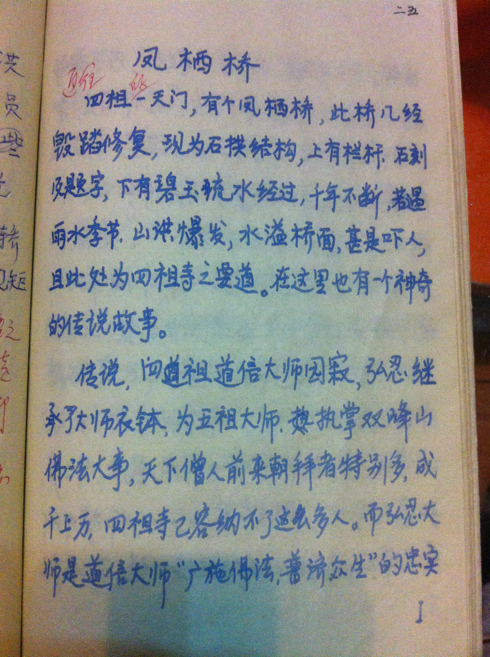 二五
凤栖桥
四祖一天门,有个凤栖桥,此桥几经
毁踏修复,现为石拱结构,上有栏杆.石刻
及题字,下有碧玉流水经过,千年不断,若遇
雨水季节.山洪爆发,水溢桥面,甚是吓人,
且此处为四祖寺之要道。在这里也有一个神奇
的传说故事。
传说,四道祖道信大师园寂,弘忍继
承了大师衣钵,为五祖大师.执掌双峰山
佛法大事,天下僧人前来朝拜者特别多,成
千上万,四祖寺已容纳不了这么多人。而弘忍大
师是道信大师"广施佛法,普济众生"的忠实
洪
员